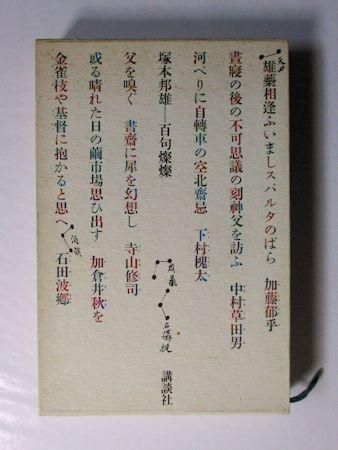 雄蘂相逢ふいましスパルタのばら　加藤郁乎
晝寢の後の不可思議の刻神父を訪ふ　中村草田男
河べりに自轉車の空北齋忌　下村槐太
塚本邦雄―百句燦燦
父を嗅ぐ　書齋に犀を幻想し　寺山修司
或る晴れた日の繭市場思ひ出す　加倉井秋を
金雀枝や基督に抱かると思へ　石田波郷
講談社